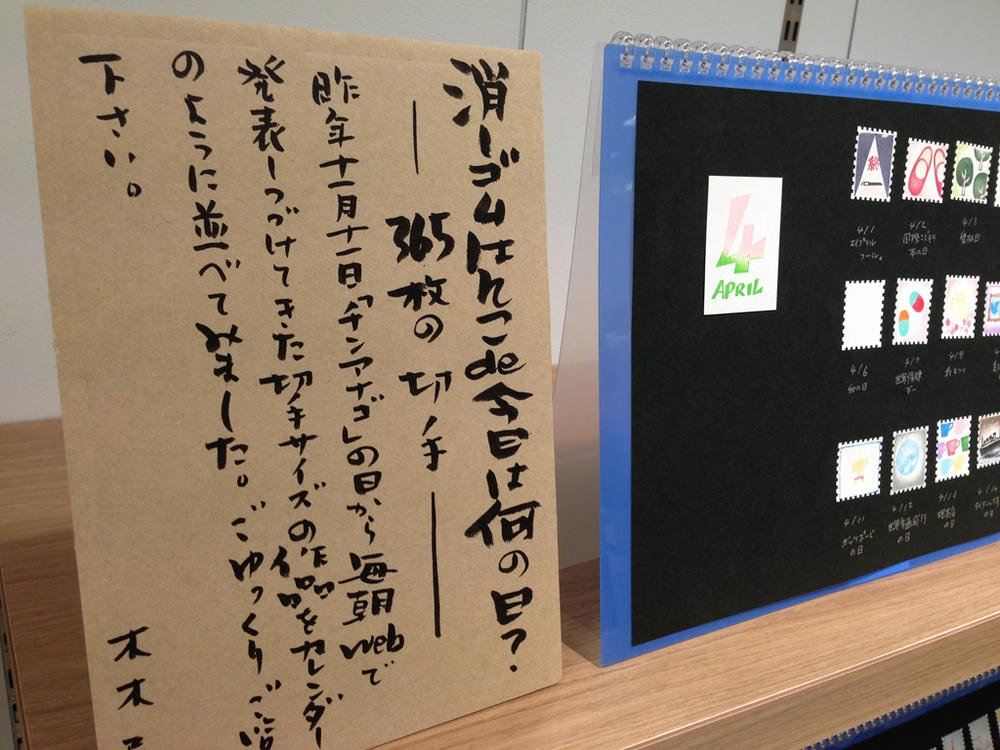 消しゴムはんこde今日は何の日?
365枚の切手
昨年十一月十一日「チンアナゴ」の日から毎朝webで
発表しつづけてきた切手サイズの作品をカレンダー
のように並べてみました。ごゆっくりご
下さい。
木木
4
APRIL
終
4/1
エイプリル
フール。
4/2
国際こどもの
本の日
4/3
4/6
4/7
世界保健
デー
4/8
花まつり
4/11
ガッツポーズ
の日
4/12
世界宇宙飛行
の日
4/13
喫茶店
の日
4/14
の日